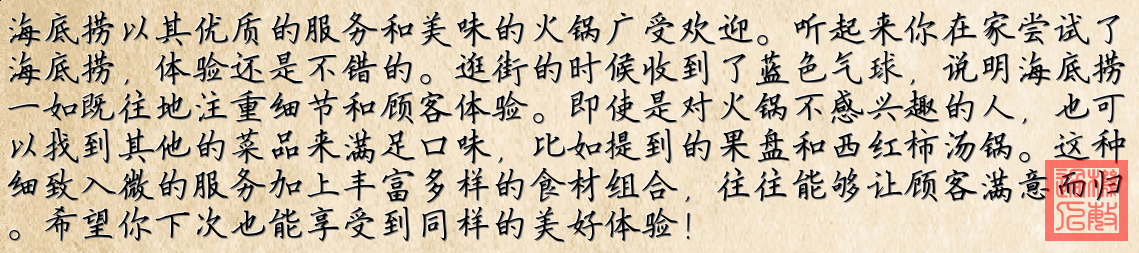 海底捞以其优质的服务和美味的火锅广受欢迎。听起来你在家尝试了
海底捞，体验还是不错的。逛街的时候收到了蓝色气球，说明海底捞
一如既往地注重细节和顾客体验。即使是对火锅不感兴趣的人，也可
以找到其他的菜品来满足口味，比如提到的果盘和西红柿汤锅。这种
细致入微的服务加上丰富多样的食材组合，往往能够让顾客满意而归
。希望你下次也能享受到同样的美好体验！